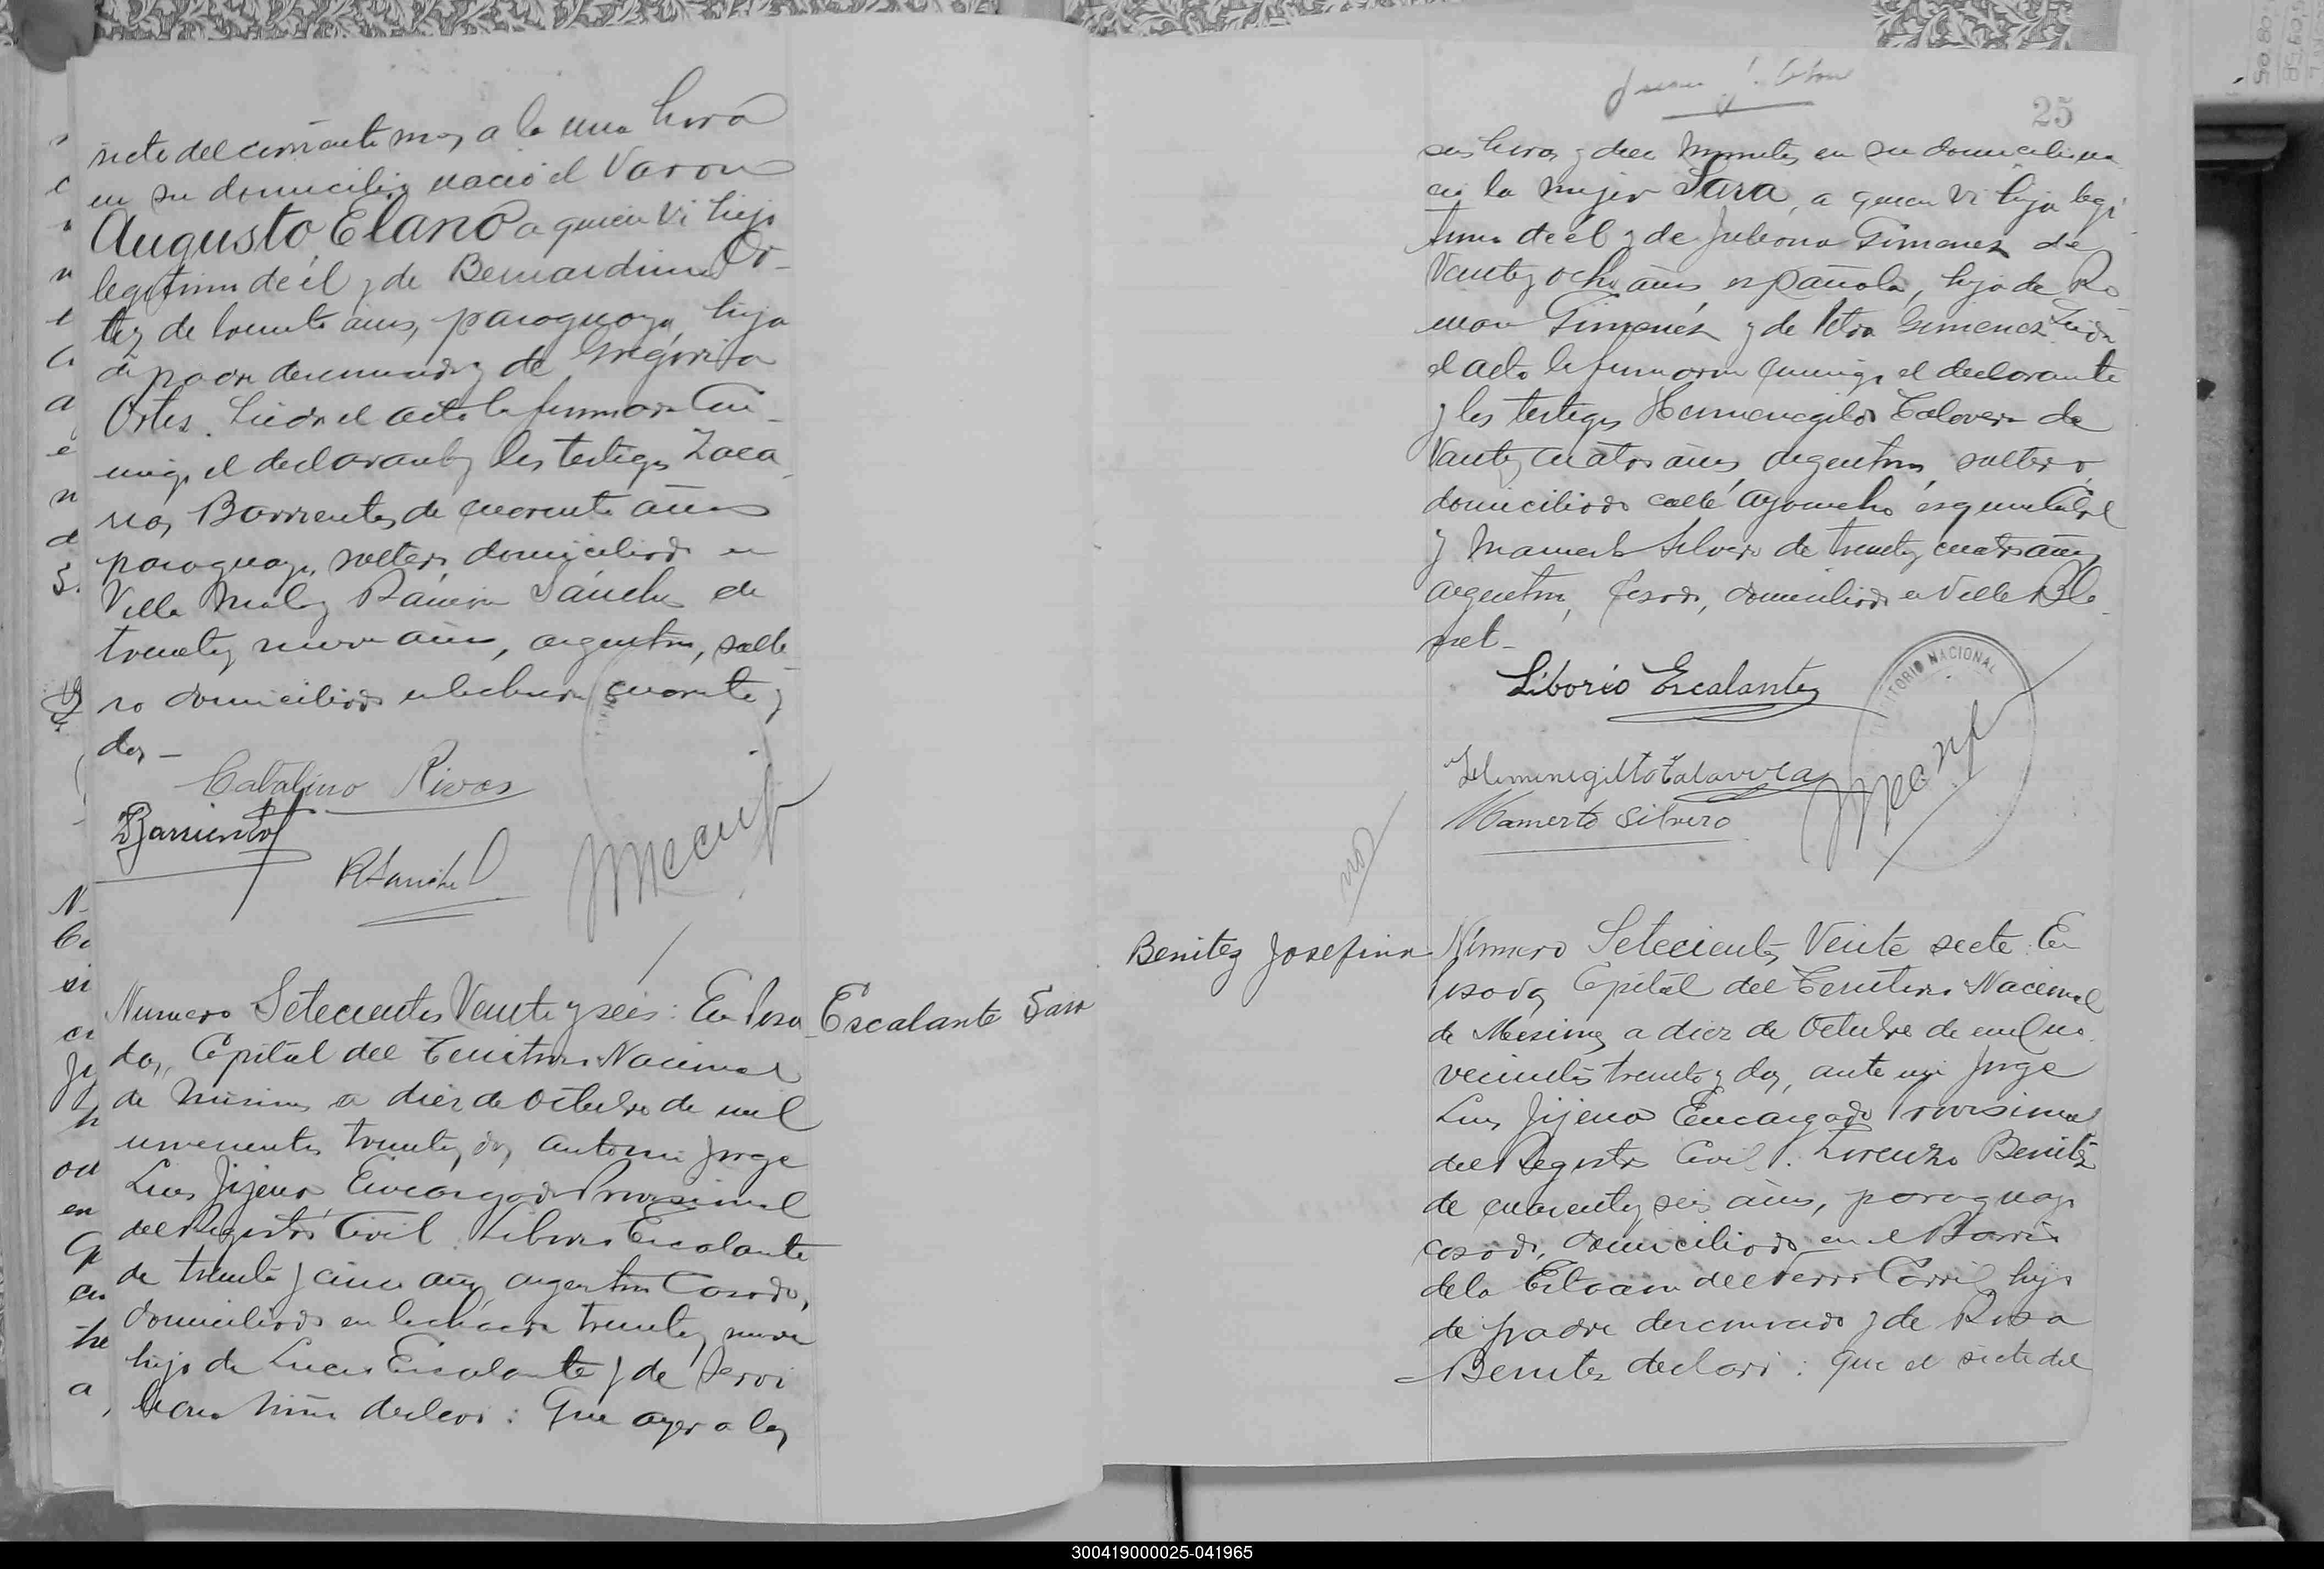 siete del corriente mes a la una hora
en su domicilio nació el Varon
Augusto Elano a quien vi hijo
legitimo de él y de Bernardina Or-
tez de treinta años, paraguaya, hija
de padre desconocido y de Gregoria
Ortez. Leida el acta la firmaron con-
migo el declarante y los testigos Zaca
rias Barrientos de cuarenta años
paraguayo, soltero domiciliado en
Villa y Ramon Sánchez de
treinta y nueve años, argentino, solte
ro domiciliado en la chacra cuarenta y
dos -
Catalino Rivas
Barrientos
RSanchez
Numero Setecientos Veinte y seis: En Posa
das, Capital del Territorio Nacional
de Misiones a diez de Octubre de mil
novecientos treinta y dos, ante mi Jorge
Luis Jijena Encargado Provisional
del Registro Civil. Liborio Escalante
de treinta y cinco años argentino Casado,
domiciliado en la chacra treinta y nueve
hijo de Lucas Escalante y de Servi
liana declaró: Que ayer a las
Escalante Sara
25
seis horas y diez minutos en su domicilio na
ció la mujer Sara, a quien vi hija legi
tima de él y de Juliana Gimenez de
Veinte y ocho años española, hija de Ro
man Gimenez y de Petra Gimenez. Leida
el acta la firmaron conmigo el declarante
y los testigos Hermenegildo Talavera de
Veinte y cuatro años, argentino, soltero
domiciliado calle Ayacucho esquina
y Mamerto Silvero de treinta y cuatro años,
argentino, Casado, domiciliado en Villa Blo
set -
Liborio Escalante
TERRITORIO NACIONAL
Hermenegildo Talavera
Mamerto Silvero
Benitez Josefina
Número Setecientos Veinte siete. En
Posadas, Capital del Territorio Nacional
de Misiones a diez de Octubre de mil no
vecientos treinta y dos, ante mi Jorge
Luis Jijena Encargado Provisional
del Registro Civil. Lorenzo Benitez
de cuarenta y seis años, paraguayo
casado, domiciliado en el Barrio
de la Estacion del Ferro Carril, hijo
de padre desconocido y de Rosa
Benitez declaró: Que el siete del
300419000025-041965